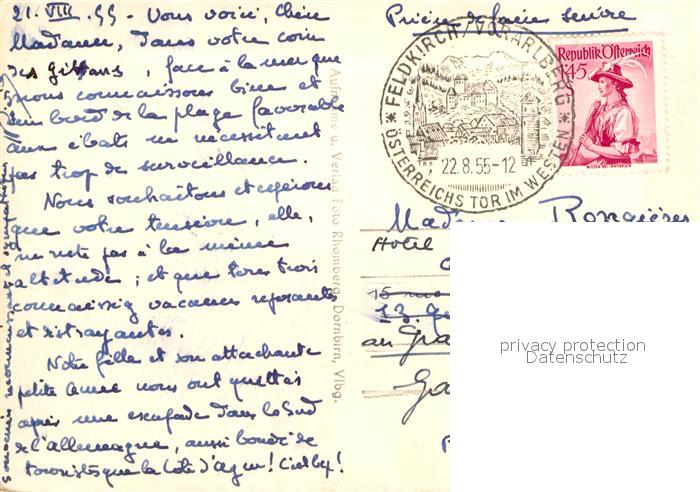 21. VIII 55 - Vous voici, Chère
Madame, dans votre coin
des, face à la mer que
nous connaissons bien et
au bord de la plage favorable
aux ébats ne nécessitant
pas trop de surveillance.
Nous souhaitons et espérons
que votre tension, elle,
ne reste pas à la même
altitude ; et que tous trois
connaissiez vacances reposantes
et distrayantes.
Notre fille et son attachante
petite amie nous ont quittés
après une escapade dans le Sud
de l'allemagne, aussi bondé de
touristes que la Côte d'Azur !
Aufnahme u. Verlag Foto Rhomberg, Dornbirn, Vlbg.
Prière de faire suivre
FELDKIRCH/VORARLBERG
22.8.55-12
ÖSTERREICHS TOR IM WESTEN
Republik Österreich
1·45
Madame
Hotel
15 rue
13.
au Gra
Ga
privacy protection
Datenschutz